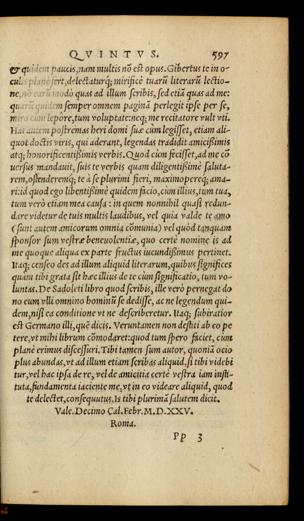 QVINTVS. 597
& quidem paucis, nam multis nõ est opus. Gibertus te in o-
culis planè fert, delectaturq́; mirificè tuarũ literarũ lectio-
ne, nõ earũ modò quas ad illum scribis, sed etiã quas ad me:
quarũ quidem semper omnem paginã perlegit ipse per se,
miro cum lepore, tum voluptate: neq; me recitare vult vti.
Has autem postremas heri domi suæ cùm legisset, etiam ali-
quot doctis viris, qui aderant, legendas tradidit amicißimis
atq; honorificentißimis verbis. Quod cùm fecisset, ad me cõ
uersus mandauit, suis te verbis quam diligentißimè saluta-
rem, ostenderemq́; te à se plurimi fieri, maximoperéq; ama-
ri: id quod ego libentißimè quidem facio, cùm illius, tum tua,
tum verò etiam mea causa: in quem nonnihil quasi redun-
dare videtur de tuis multis laudibus, vel quia valde te amo
(sunt autem amicorum omnia cõmunia) vel quòd tanquam
sponsor sum vestræ beneuolentiæ, quo certè nomine is ad
me quoque aliqua ex parte fructus iucundißimus pertinet.
Itaq; censeo des ad illum aliquid literarum, quibus significes
quàm tibi grata sit hæc illius de te cùm significatio, tum vo-
luntas. De Sadoleti libro quod scribis, ille verò pernegat do
no eum vlli omnino hominũ se dedisse, ac ne legendum qui-
dem, nisi ea conditione vt ne describeretur. Itaq; subiratior
est Germano illi, quē dicis. Veruntamen non destiti ab eo pe
tere, vt mihi librum cõmodaret: quod tum spero faciet, cùm
planè erimus discessuri. Tibi tamen sum autor, quoniã ocio
plus abundas, vt ad illum etiam scribas aliquid, si tibi videbi
tur, vel hac ipsa de re, vel de amicitia certè vestra iam insti-
tuta, fundamenta iaciente me, vt in eo videare aliquid, quod
te delectet, consequutus. Is tibi plurimã salutem dicit.
Vale. Decimo Cal. Febr. M. D. XXV.
Roma.
Pp 3